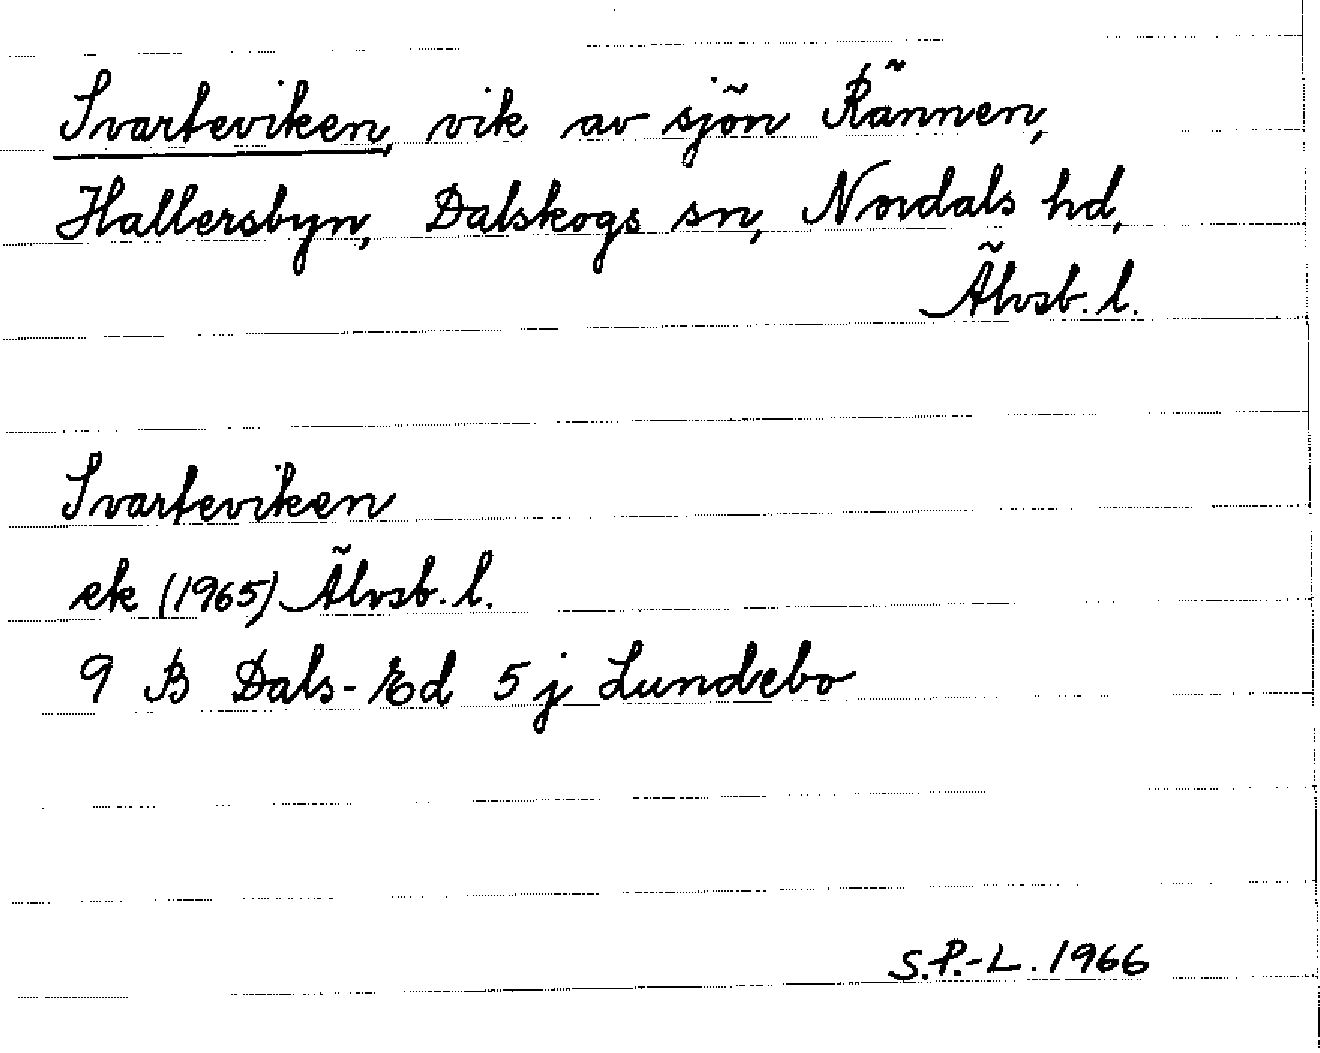 Svarteviken, vik av sjön Rännen,
Hallersbyn, Dalskogs sn, Nordals hd,
Älvsb. l.
Svarteviken
ek (1965) Älvsb. l.
9 B Dals-Ed 5 j Lundebo
S.P.-L. 1966